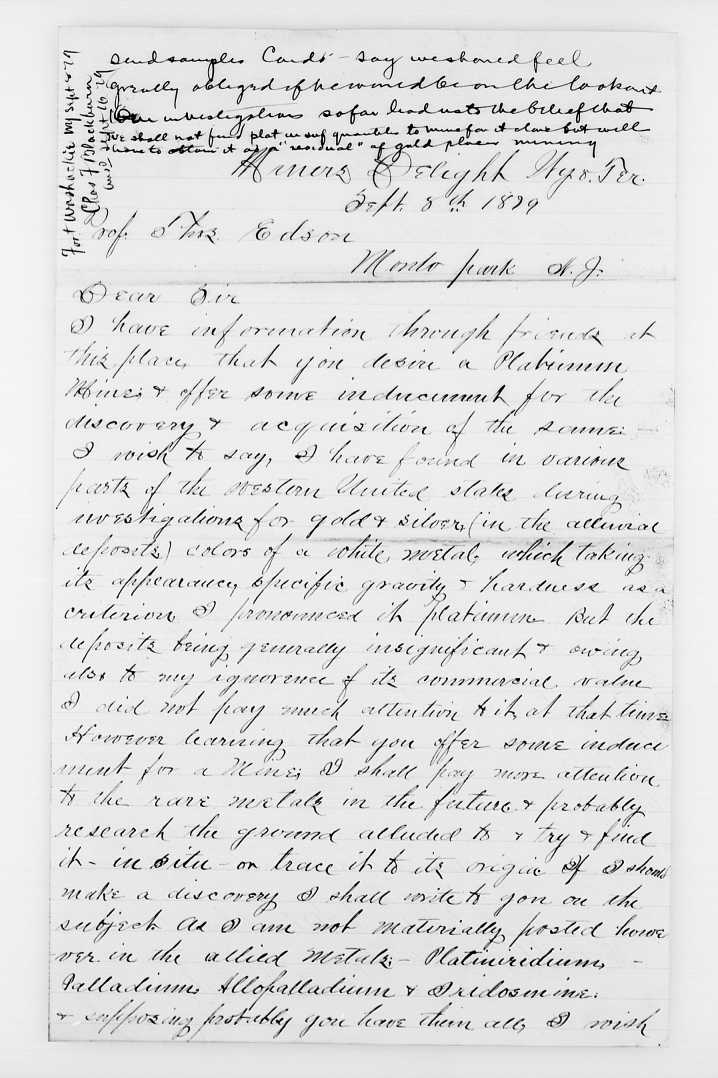 send samples Cards - say we should feel
greatly obliged if he would be on the lookout
Our investigations so far lead us to the belief that
we shall not find plat in suf quantity to mine for it alone but will
have to obtain it as a "residual" of gold placer mining
Fort Washackie Wy Sept 8-79
Chas F Blackburn
Sept 16-79
Miners Delight Wyo. Ter.
Sept. 8th 1879
Prof. Thos. Edson
Monlo park N. J.
Dear Sir
I have information through friends at
this place, that you desire a Platinum
Mine; & offer some inducement for the
discovery & acquisition of the same: -
I wish to say, I have found in various
parts of the western United states during
investigations for gold & silver, (in the alluvial
deposits) colors of a white, metal, which taking
its appearance, specific gravity & hardness as a
criterion I pronounced it platinum But the
deposits being generally insignificant & owing
also to my ignorence of its commercial value
I did not pay much attention to it, at that time
However learning that you offer some induce
ment for a Mine; I shall pay more attention
to the rare metals in the future & probably
research the ground alluded to & try & find
it - in situ - or trace it to its origin If I should
make a discovery I shall write to you on the
subject As I am not materially posted howe
ver in the allied Metals; - Platiniridium, -
Palladium, Allopalladium & Iridosmine:
& supposing probably you have them all, I wish